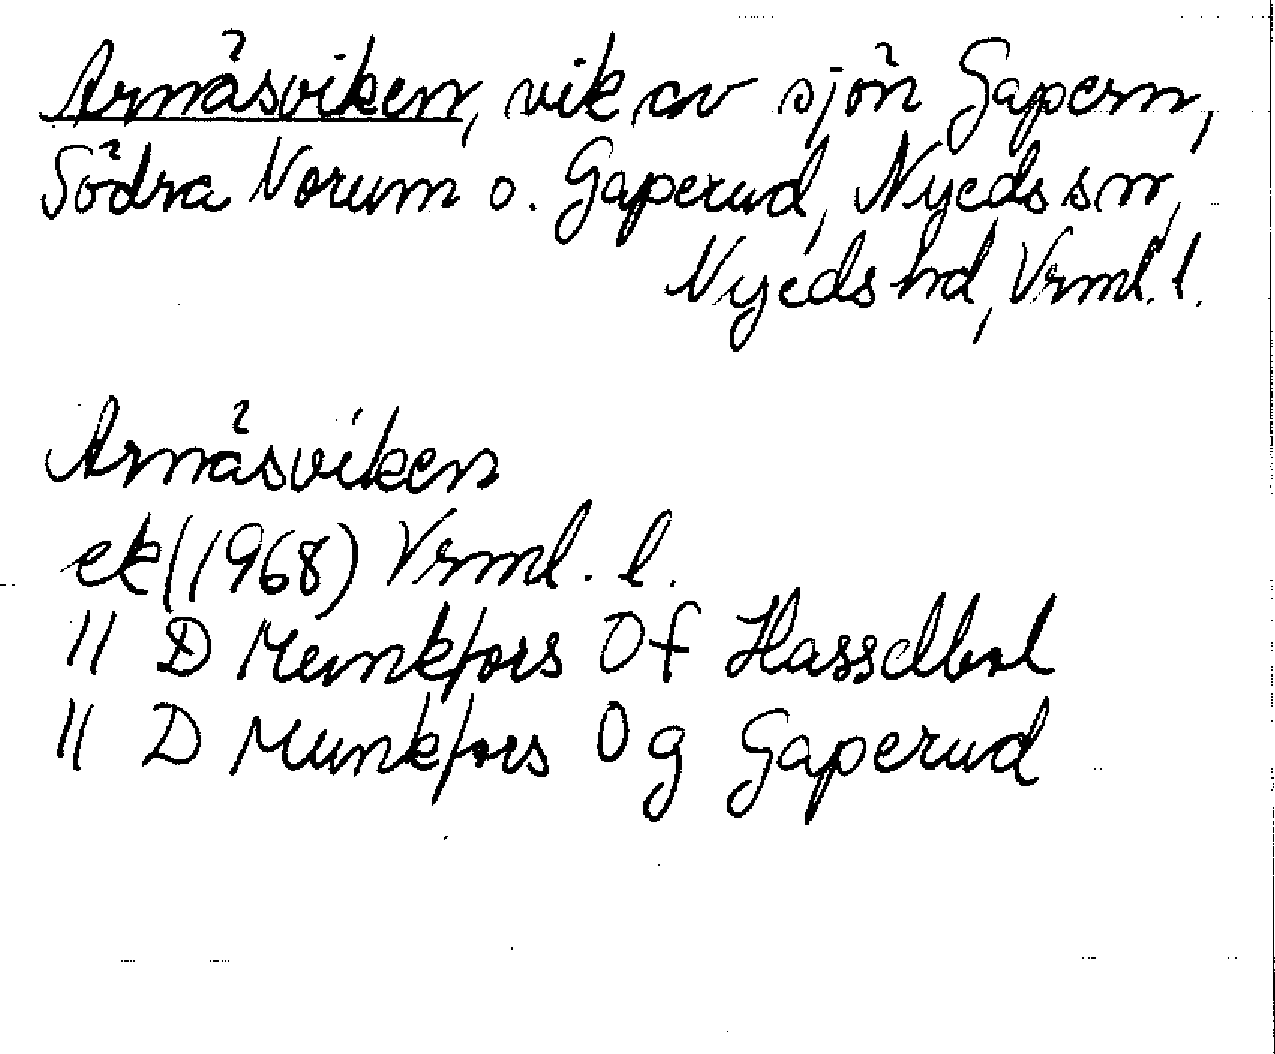 Arnäsviken, vik av sjön Gapern,
Södra Vorum o. Gaperud, Nyeds sn,
Nyeds hd, Vrml. l.
Arnäsviken
ek (1968) Vrml. l.
" D Munkfors 0f Hasselbol
" D Munkfors 0g Gaperud